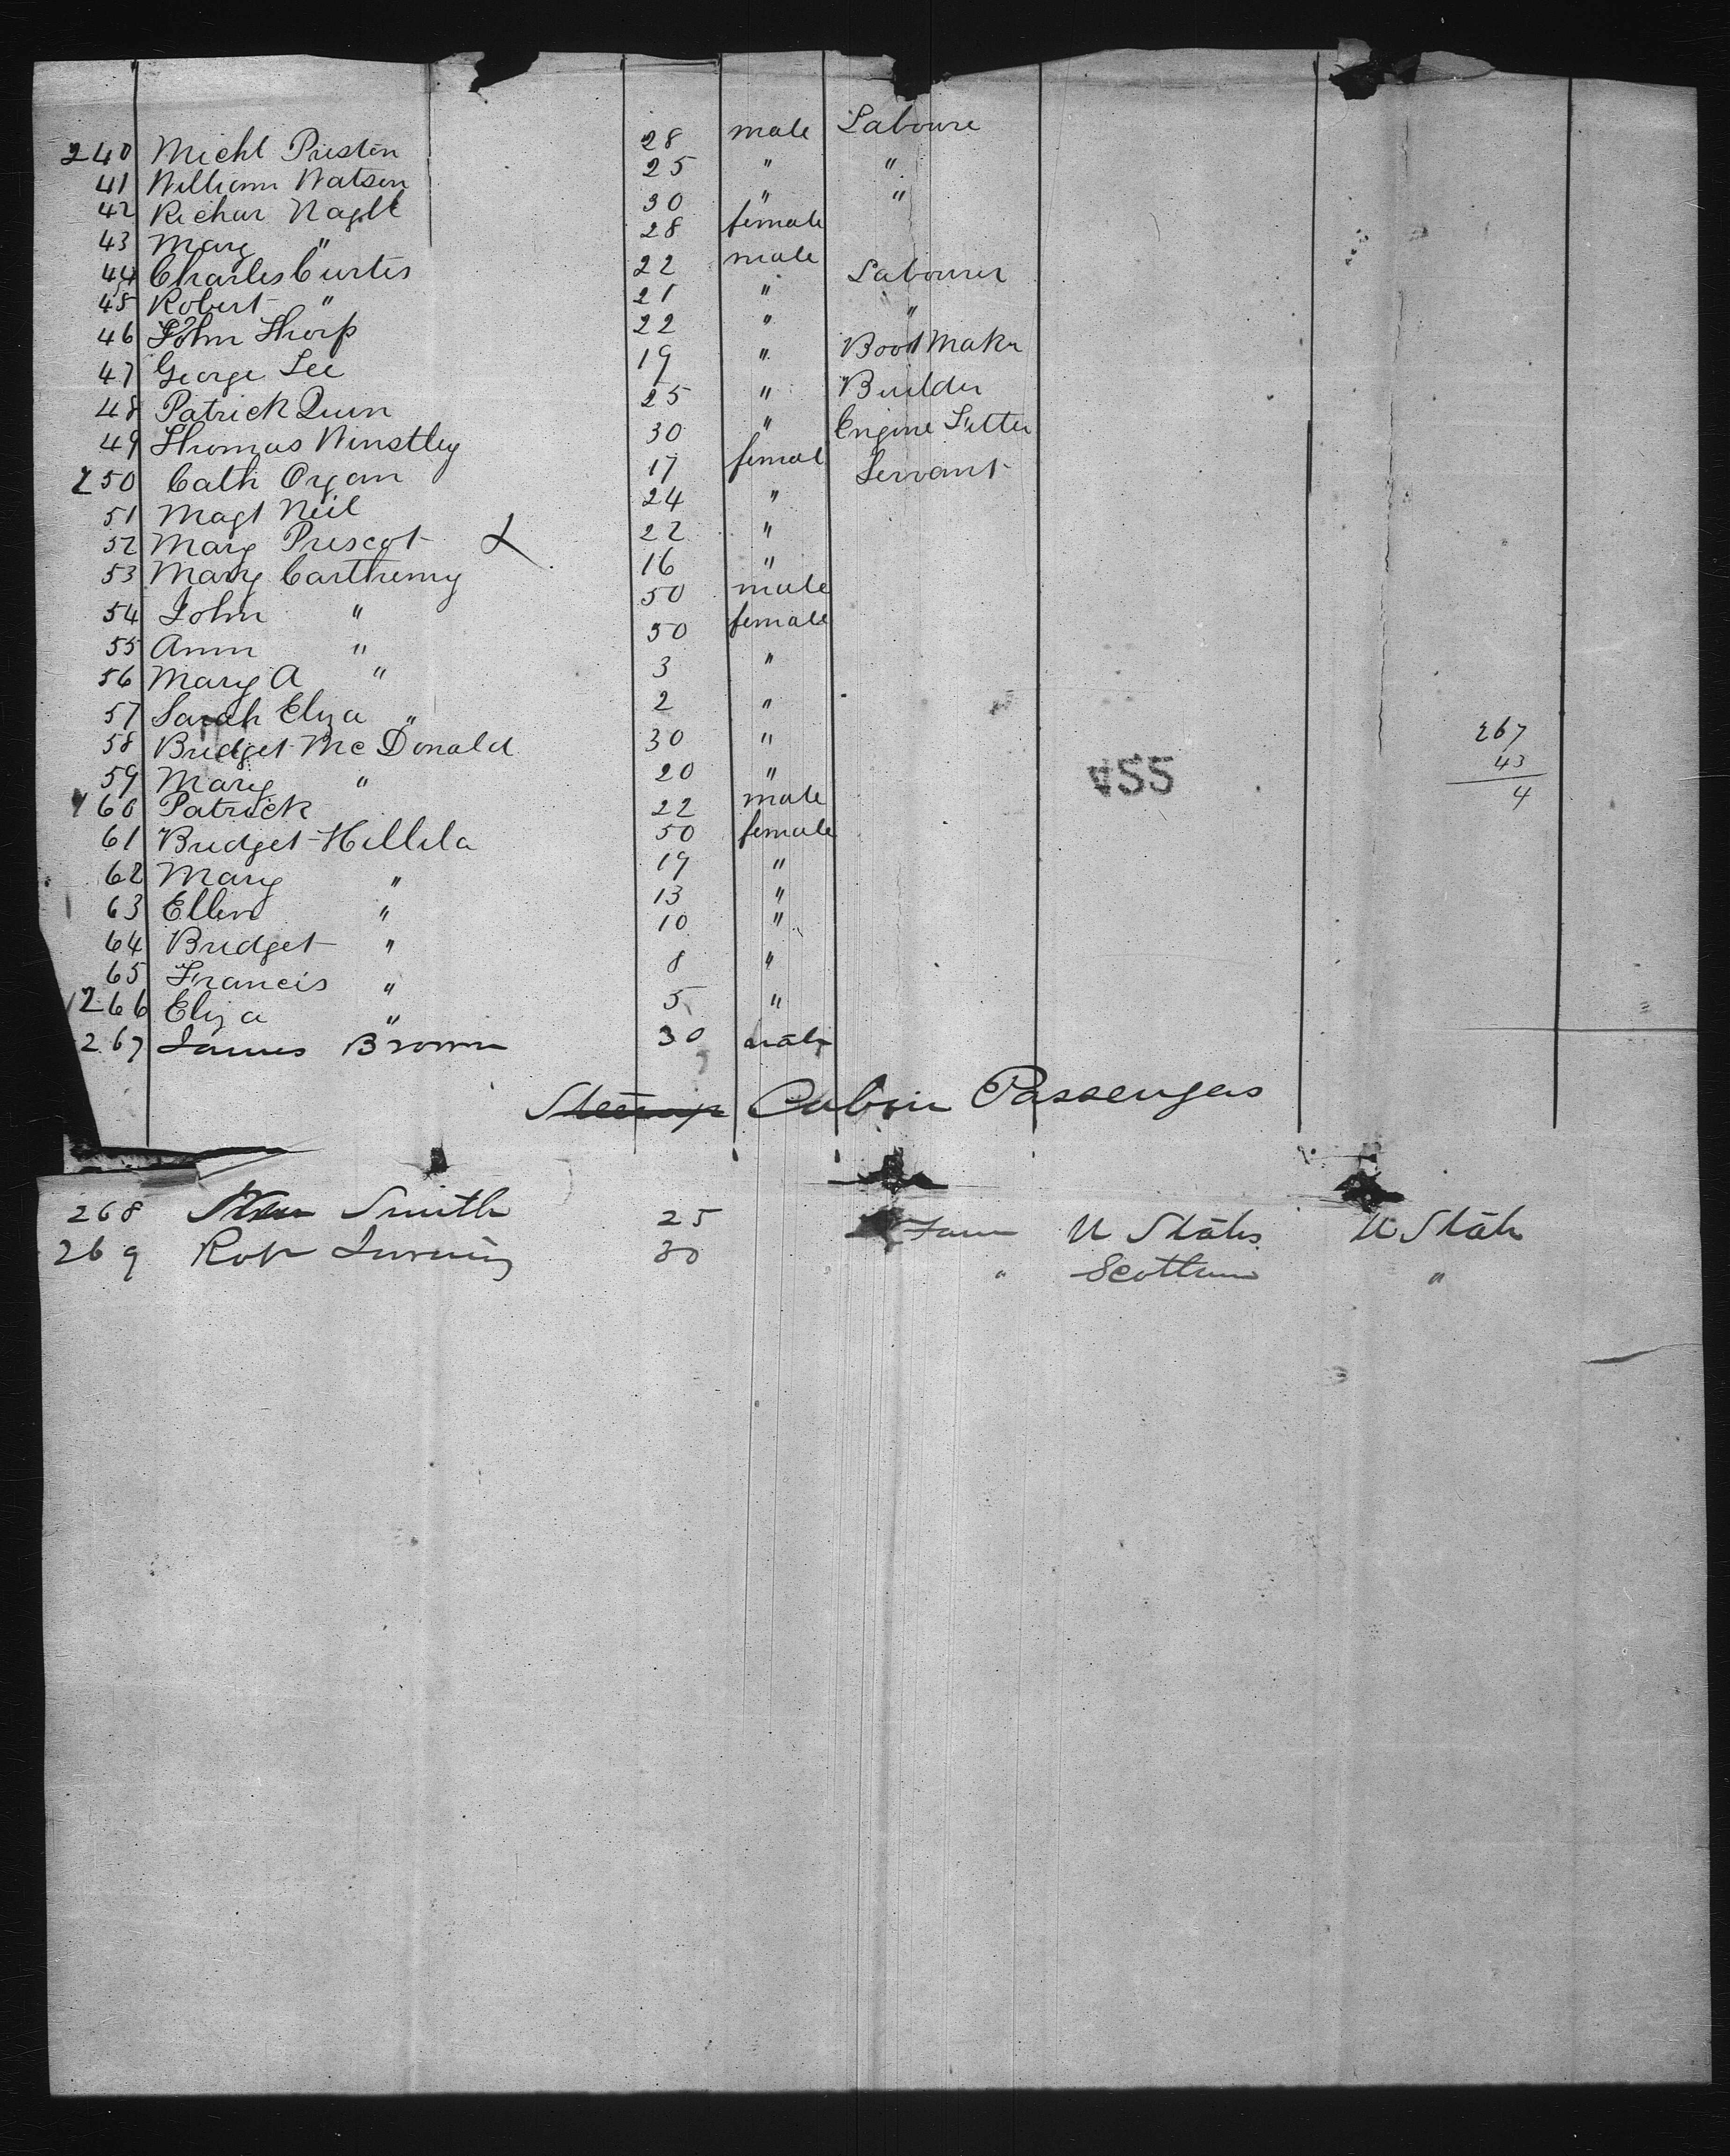 240 Michl Preston 28 male Laboure
41 William Watson 25 " "
42 Richar Nagle 30 " "
43 Mary " 28 female
44 Charles Curtis 22 male Labourer
45 Robert " 21 " "
46 John Thorp 22 "
47 George Lee 19 " Boot Maker
48 Patrick Quin 25 " Builder
49 Thomas Winstley 30 " Engine Fitter
250 Cath Organ 17 femal Servant
51 Magt Neil 24 "
52 Mary Prescot 22 "
53 Mary Carthemy 16 "
54 John " 50 male
55 Ann " 50 female
56 Mary A " 3 "
57 Sarah Eliza " 2 "
58 Bridget McDonald 30 "
59 Mary " 20 "
260 Patrick 22 male
61 Bridget Hillila 50 female
62 Mary " 19 "
63 Ellen " 13 "
64 Bridget " 10 "
65 Francis " 8 "
266 Eliza " 5 "
267 James Brown 30 male
267
43
4
455
Steerage Cabin Passengers
268 Smith 25 U States U State
269 Robt 30 " Scotland "